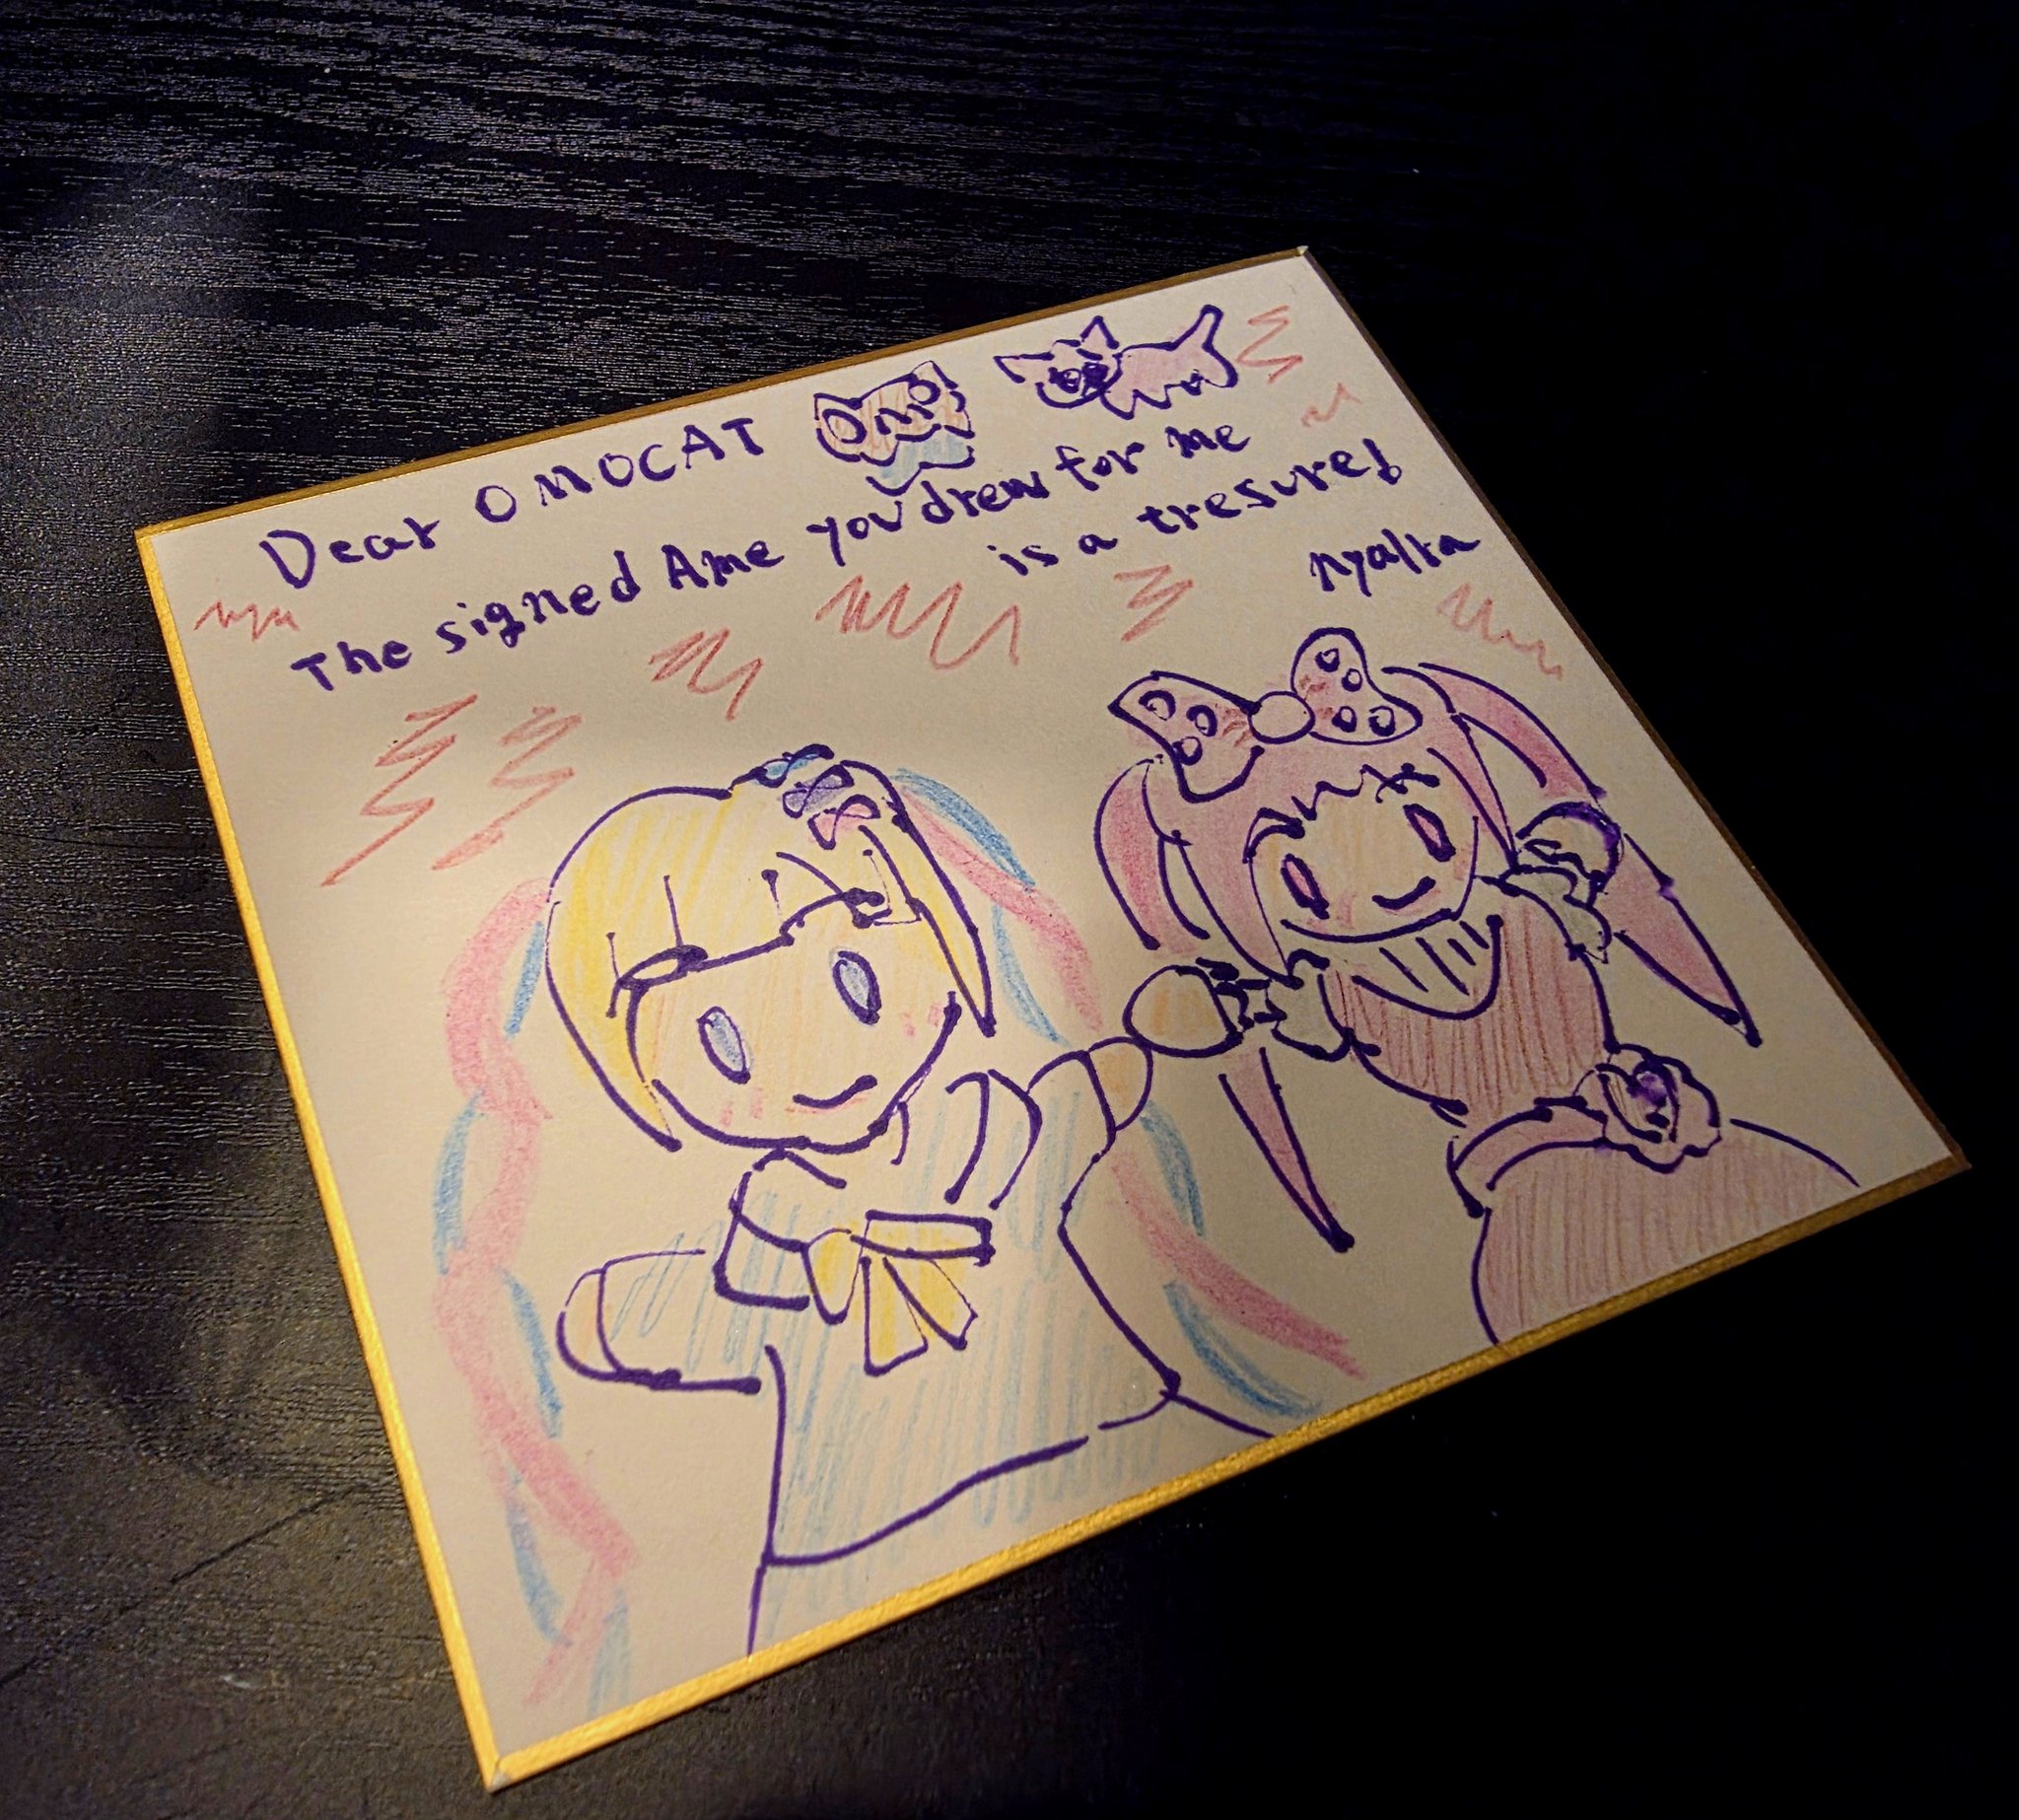 Dear OMOCAT
The signed Ame you drew for me
is a tresure!